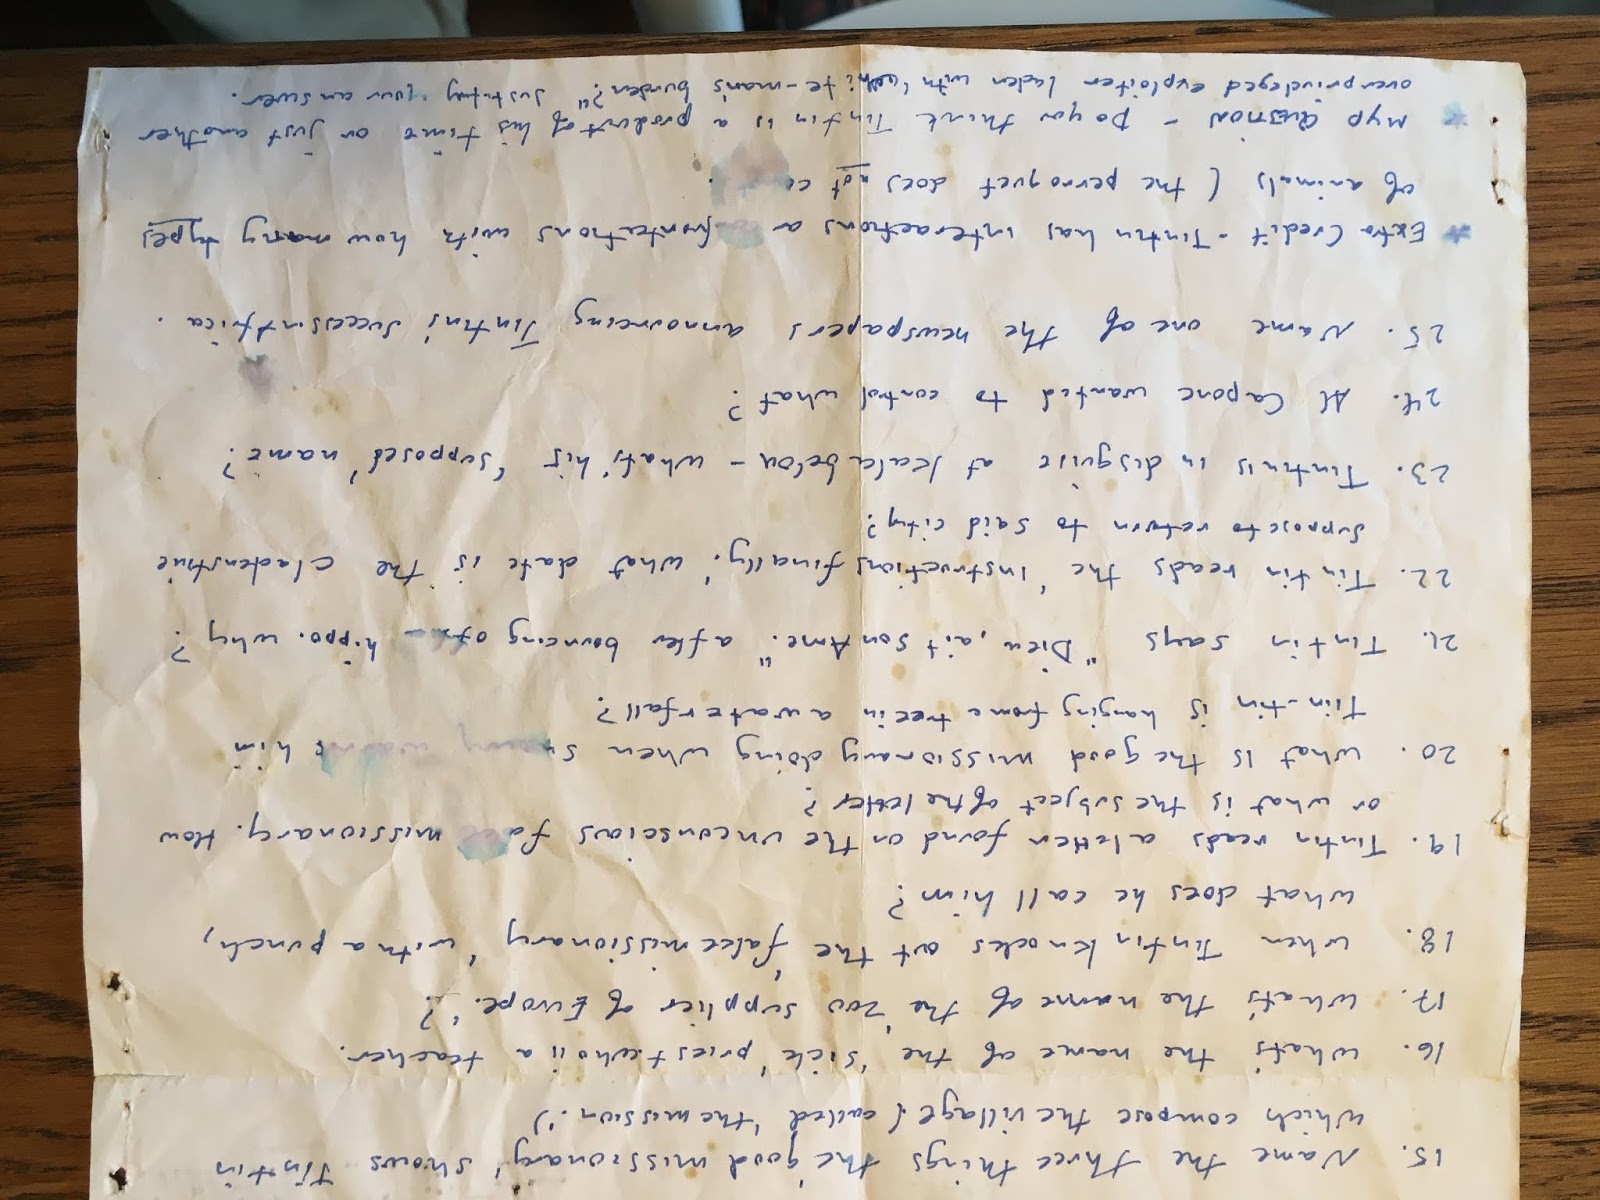 15. Name the three things the 'good missionary' shows Tintin
which compose the village (called 'the mission.')
16. What's the name of the 'sick' priest who is a teacher.
17. What's the name of the 'zoo supplier of Europe.'?
18. When Tintin knocks out the 'fake missionary' with a punch,
what does he call him?
19. Tintin reads a letter found on the unconscious missionary. How
or what is the subject of the letter?
20. What is the good missionary doing when him
Tin-tin is hanging from a tree in a waterfall?
21. Tintin says "Dieu, ait son Ame." after bouncing of hippo. Why?
22. Tintin reads the 'instructions' finally. What date is the cladenstine
suppose to return to said city?
23. Tintin is in disguise at Kalabelou - what's his 'supposed' name?
24. Al Capone wanted to control what?
25. Name one of the newspapers announcing Tintin's success in Africa.
* Extra Credit - Tintin has interactions or confrontations with how many types
of animals (the perroquet does not
* MYP QUESTION - Do you think Tintin is a product of his time or just another
overprivcleged exploiter laden with 'white-man's burden?" Justify your answer.